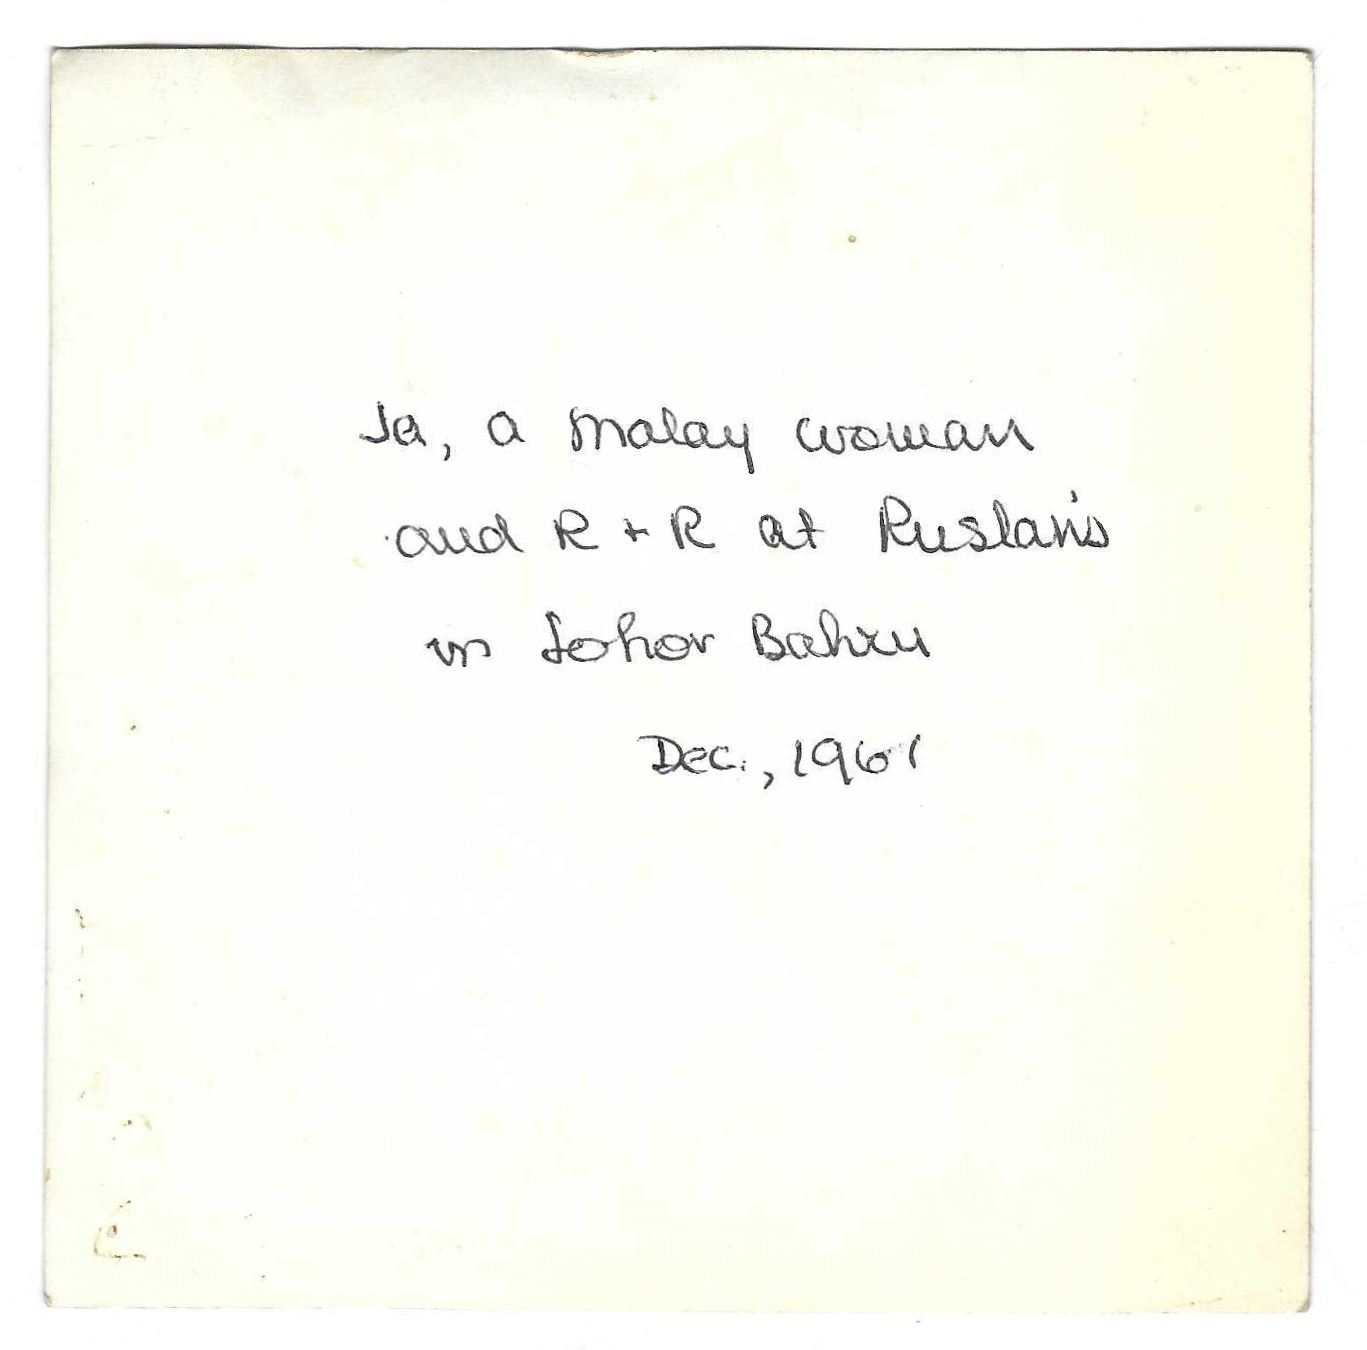 Ja, a Malay woman
and R + R at Ruslan's
in Johor Bahru
Dec., 1961